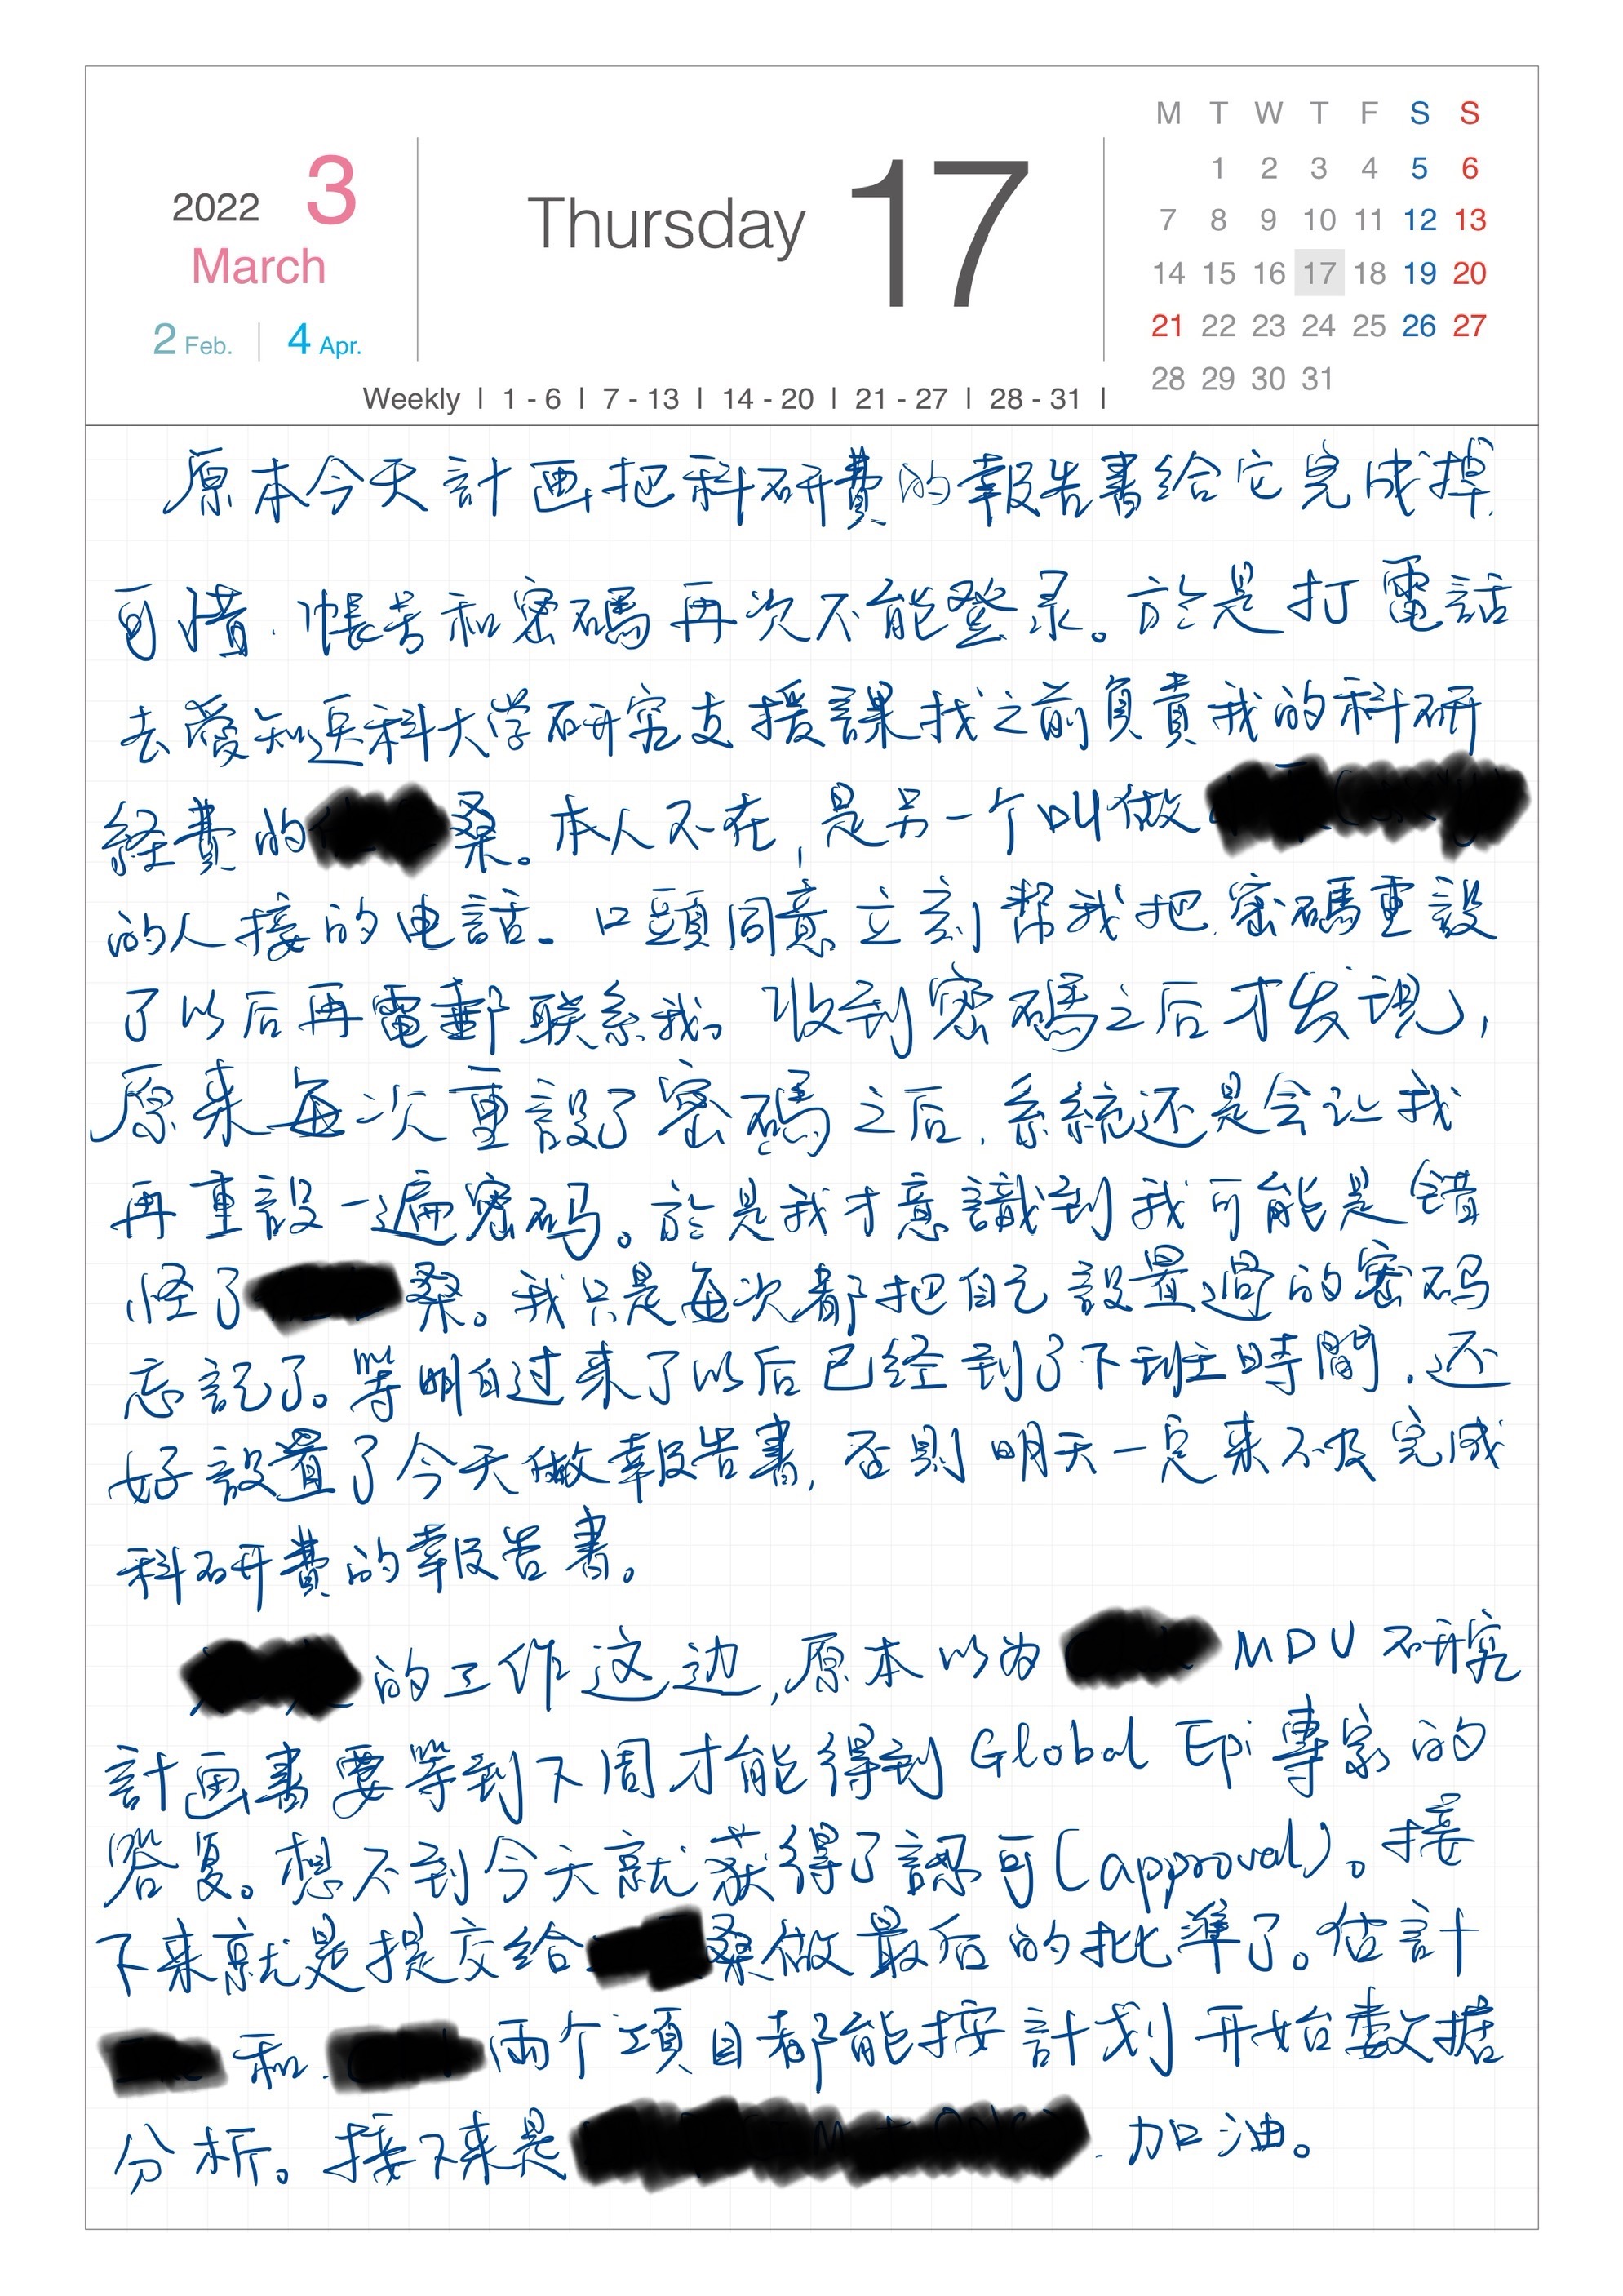 M T W T F S S
1 2 3 4 5 6
7 8 9 10 11 12 13
14 15 16 17 18 19 20
21 22 23 24 25 26 27
28 29 30 31
2022 3
March
2 Feb. | 4 Apr.
Thursday 17
Weekly | 1 - 6 | 7 - 13 | 14 - 20 | 21 - 27 | 28 - 31 |
原本今天計画把科研費的報告書給它完成掉.
可惜.帳号和密碼再次不能登录。於是打電話
去愛知医科大学研究支援課找之前負責我的科研
経費的桑。本人不在,是另一个叫做
的人接的电話。口頭同意立刻帮我把密碼重設
了以后再電郵联系我。收到密碼之后才发現,
原来每次重設了密碼之后,系統还是会让我
再重設一遍密码。於是我才意識到我可能是错
怪了桑。我只是每次都把自己設置過的密码
忘記了。等明白过来了以后已经到了下班時間.还
好設置了今天做報告書,否則明天一定来不及完成
科研費的報告書。
的工作这边,原本以为 MDU 研究
計画書要等到下周才能得到 Global Epi 專家的
答复。想不到今天就获得了認可(approval)。接
下来就是提交給桑做最后的批準了。估計
和 兩个項目都能按計划开始数据
分析。接下来是 . 加油。